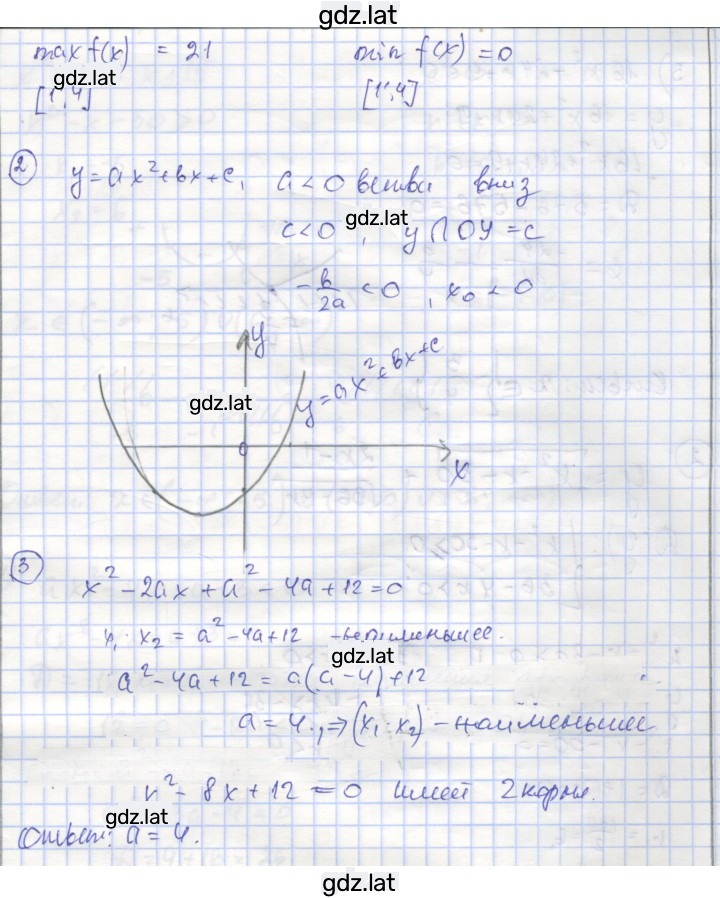 gdz.lat
max f(x) = 21 min f(x) = 0
gdz.lat
[1;4] [1;4]
2 y = ax²+bx+c, a<0 ветви вниз
gdz.lat
c<0, y∩OY=c
-b/2a <0, x₀<0
y
y=ax²+bx+c
gdz.lat
0
x
3 x²-2ax+a²-4a+12=0
x₁·x₂ = a²-4a+12 -наименьшее.
gdz.lat
a²-4a+12 = a(a-4)+12
a=4., ⇒(x₁·x₂)-наименьшее
x²-8x+12=0 имеет 2 корня.
gdz.lat
Ответ: a=4.
gdz.lat